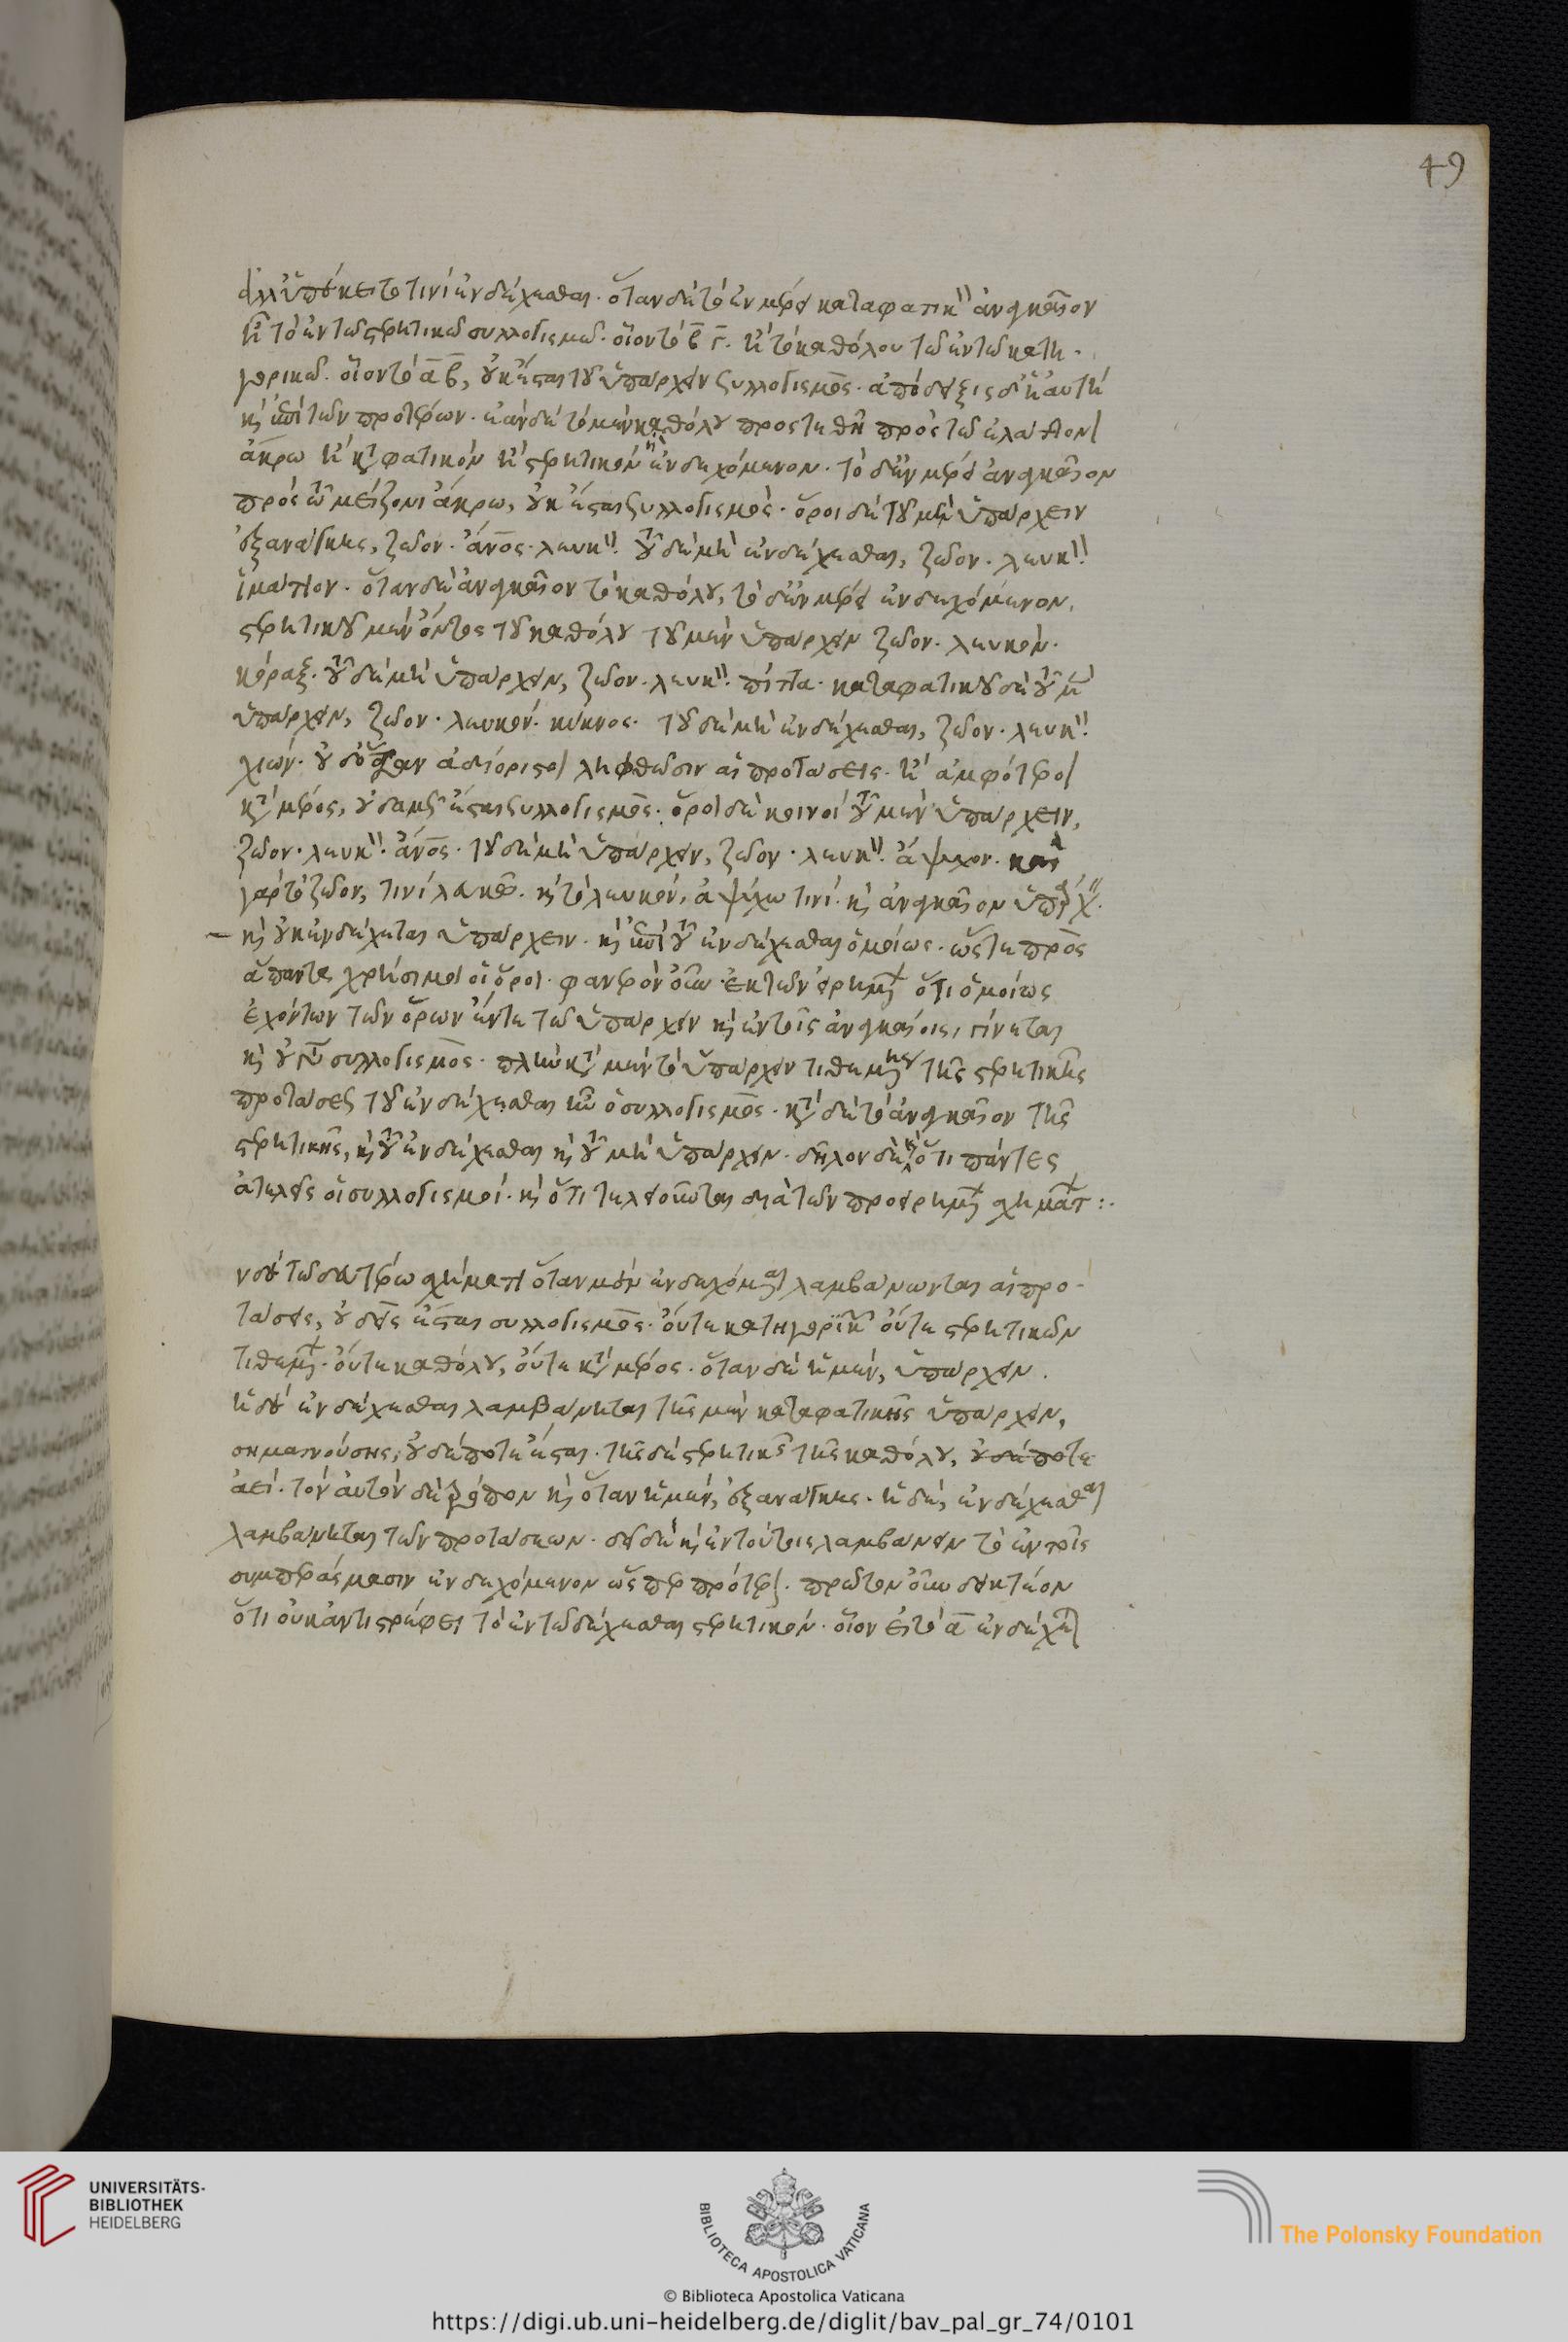 ἀλλ' ὑπέκειτο τινὶ ἐνδέχεσθαι. ὅταν δὲ τὸ ἐν μέρει καταφατικ(ὸν) ἀναγκαῖον
ἦ τὸ ἐν τῶ στερητικῶ συλλογισμῶ. οἷον τὸ β̅ γ̅. ἢ τὸ καθόλου τῶ ἐν τῶ κατη-
γορικῶ. οἷον τὸ α̅ β̅, οὐκ ἔσται τοῦ ὑπάρχειν συλλογισμός. ἀπόδειξις δ' ἡ αὐτὴ
κ(αὶ) ἐπὶ τῶν προτέρων. ἐὰν δὲ τὸ μὲν καθόλου προστεθῆ πρὸς τῶ ἐλάττονι
ἄκρω ἢ κ(ατα)φατικὸν ἢ στερητικὸν ἐνδεχόμενον. τὸ δ' ἐν μέρει ἀναγκαῖον
πρὸς τῶ μείζονι ἄκρω, οὐκ ἔσται συλλογισμός. ὅροι δὲ τοῦ μὲν ὑπάρχειν
ἐξ ἀνάγκης, ζῶον. ἄν(θρωπ)ος. λευκ(όν). τοῦ δὲ μὴ ἐνδέχεσθαι, ζῶον. λευκ(όν).
ἱμάτιον. ὅταν δὲ ἀναγκαῖον τὸ καθόλου, τὸ δ' ἐν μέρει ἐνδεχόμενον,
στερητικοῦ μὲν ὄντος τοῦ καθόλου τοῦ μὲν ὑπάρχειν ζῶον. λευκὸν.
κόραξ. τοῦ δὲ μὴ ὑπάρχειν, ζῶον. λευκ(όν). πίττα. καταφατικοῦ δὲ τοῦ μ(ὲν)
ὑπάρχειν, ζῶον. λευκὸν. κύκνος. τοῦ δὲ μὴ ἐνδέχεσθαι, ζῶον. λευκ(όν).
χιών. οὐδ' ὅταν ἀδιόριστοι ληφθῶσιν αἱ προτάσεις. ἢ ἀμφότεροι
κ(ατὰ) μέρος, οὐδαμῶς ἔσται συλλογισμός. ὅροι δὲ κοινοὶ τοῦ μὲν ὑπάρχειν,
ζῶον. λευκ(όν). ἄν(θρωπ)ος. τοῦ δὲ μὴ ὑπάρχειν, ζῶον. λευκ(όν). ἄψυχον. καὶ
γὰρ τὸ ζῶον, τινὶ λευκῶ. κ(αὶ) τὸ λευκὸν, ἀψύχω τινὶ. κ(αὶ) ἀναγκαῖον ὑπάρχ(ειν).
κ(αὶ) οὐκ ἐνδέχεται ὑπάρχειν. κ(αὶ) ἐπὶ τοῦ ἐνδέχεσθαι ὁμοίως. ὥστε πρὸς
ἅπαντα χρήσιμοι οἱ ὅροι. φανερὸν οὖν ἐκ τῶν εἰρημ(έν)ων ὅτι ὁμοίως
ἐχόντων τῶν ὅρων ἔν τε τῶ ὑπάρχειν κ(αὶ) ἐν τοῖς ἀναγκαίοις, γίνεται
κ(αὶ) οὐ γί(νεται) συλλογισμός. πλὴν κ(ατὰ) μὲν τὸ ὑπάρχειν τιθεμ(έν)ης τῆς στερητικῆς
προτάσεως τοῦ ἐνδέχεσθαι ἦν ὁ συλλογισμός. κ(ατὰ) δὲ τὸ ἀναγκαῖον τῆς
στερητικῆς, κ(αὶ) τοῦ ἐνδέχεσθαι κ(αὶ) τοῦ μὴ ὑπάρχειν. δῆλον δὲ κ(αὶ) ὅτι πάντες
ἀτελεῖς οἱ συλλογισμοί. κ(αὶ) ὅτι τελειοῦνται διὰ τῶν προειρημ(έν)ων σχημάτ(ων) :.
ν δὲ τῶ δευτέρω σχήματι ὅταν μὲν ἐνδεχόμ(εν)αι λαμβάνωνται αἱ προ-
τάσεις, οὐδεὶς ἔσται συλλογισμός. οὔτε κατηγορικῶ(ν) οὔτε στερητικῶν
τιθεμ(έν)ων. οὔτε καθόλου, οὔτε κ(ατὰ) μέρος. ὅταν δὲ ἡ μὲν, ὑπάρχειν.
ἡ δ' ἐνδέχεσθαι λαμβάνηται τῆς μὲν καταφατικῆς ὑπάρχειν,
σημαινούσης, οὐδέποτε ἔσται. τῆς δὲ στερητικῆς τῆς καθόλου, οὐδέποτε
ἀεί. τὸν αὐτὸν δὲ τρόπον κ(αὶ) ὅταν ἡ μὲν, ἐξ ἀνάγκης. ἡ δὲ, ἐνδέχεσθαι
λαμβάνηται τῶν προτάσεων. δεῖ δὲ κ(αὶ) ἐν τούτοις λαμβάνειν τὸ ἐν τοῖς
συμπεράσμασιν ἐνδεχόμενον ὥσπερ πρότερ(ον). πρῶτον οὖν δεικτέον
ὅτι οὐκ ἀντιστρέφει τὸ ἐν τῶ δέχεσθαι στερητικόν. οἷον εἰ τὸ α̅ ἐνδέχ(εται)
49
UNIVERSITÄTS-
BIBLIOTHEK
HEIDELBERG
BIBLIOTECA APOSTOLICA VATICANA
The Polonsky Foundation
© Biblioteca Apostolica Vaticana
https://digi.ub.uni-heidelberg.de/diglit/bav_pal_gr_74/0101